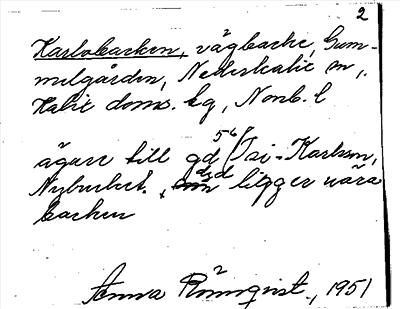 2
Karlsbacken, vägbacke, Gum-
melgården, Nederkalix sn,
Kalix doms. hg, Nonb. l
ägare till gd 5⁶ Karlsson,
Nyburket, ligger nära
backen
Anna Rönnqvist, 1951